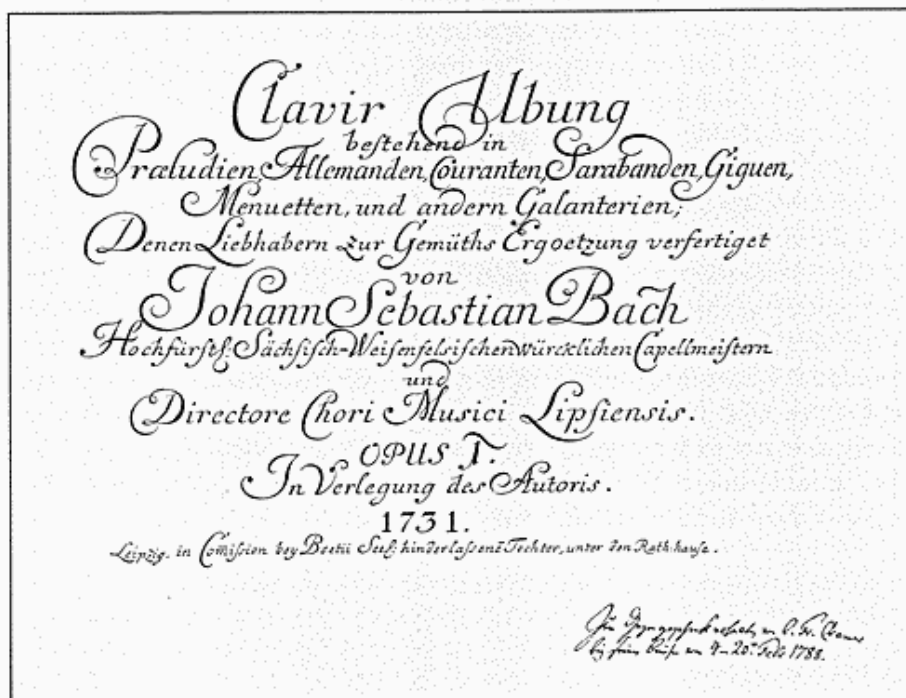 Clavir Ubung
bestehend in
Præludien, Allemanden, Couranten, Sarabanden, Giguen,
Menuetten, und andern Galanterien;
Denen Liebhabern zur Gemüths Ergoetzung verfertiget
von
Johann Sebastian Bach
Hochfürstl: Sächsisch-Weisenfelsischen würcklichen Capellmeistern
und
Directore Chori Musici Lipsiensis.
OPUS I.
In Verlegung des Autoris.
1731.
Leipzig. in Com̄ission bey Boetii Seel: hinderlassenē Tochter, unter den Rath-hause.
1788.